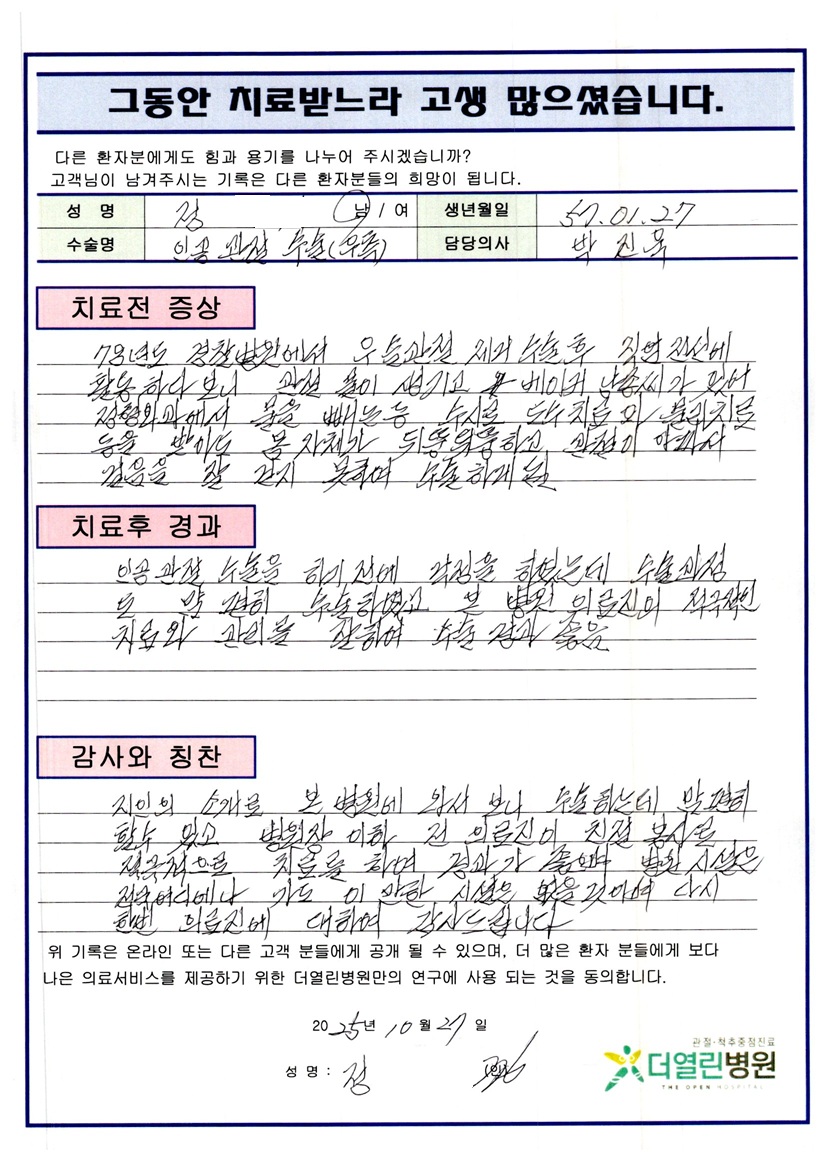 그동안 치료받느라 고생 많으셨습니다.
다른 환자분에게도 힘과 용기를 나누어 주시겠습니까?
고객님이 남겨주시는 기록은 다른 환자분들의 희망이 됩니다.
성 명 정 남 / 여 생년월일 57.01.27
수술명 인공관절 수술(우측) 담당의사 박진욱
치료전 증상
78년도 경찰병원에서 우슬관절 제거 수술후 직업전선에
활동하다 보니 관절 물이 생기고 베이커 낭종씨가 있어
정형외과에서 물을 빼는등 수시로 도수치료와 물리치료
등을 받아도 몸 자체가 뒤뚱뒤뚱하고 관절이 아파서
걸음을 잘 걷지 못하여 수술하게됨
치료후 경과
인공관절 수술을 하기전에 걱정을 하였는데 수술과정
도 맘 편히 수술하였고 본 병원 의료진의 적극적인
치료와 관리를 잘하여 수술 경과 좋음
감사와 칭찬
지인의 소개로 본 병원에 와서 보니 수술하는데 맘편히
할수 있고 병원장 이하 전 의료진이 친절 봉사로
적극적으로 치료를 하여 경과가 좋으며 병원 시설은
전국어디에나 가도 이 만한 시설은 없을것이며 다시
한번 의료진에 대하여 감사드립니다
위 기록은 온라인 또는 다른 고객 분들에게 공개 될 수 있으며, 더 많은 환자 분들에게 보다
나은 의료서비스를 제공하기 위한 더열린병원만의 연구에 사용 되는 것을 동의합니다.
2025년 10월 27일
성 명 : 정
관절·척추중점진료
더열린병원
THE OPEN HOSPITAL